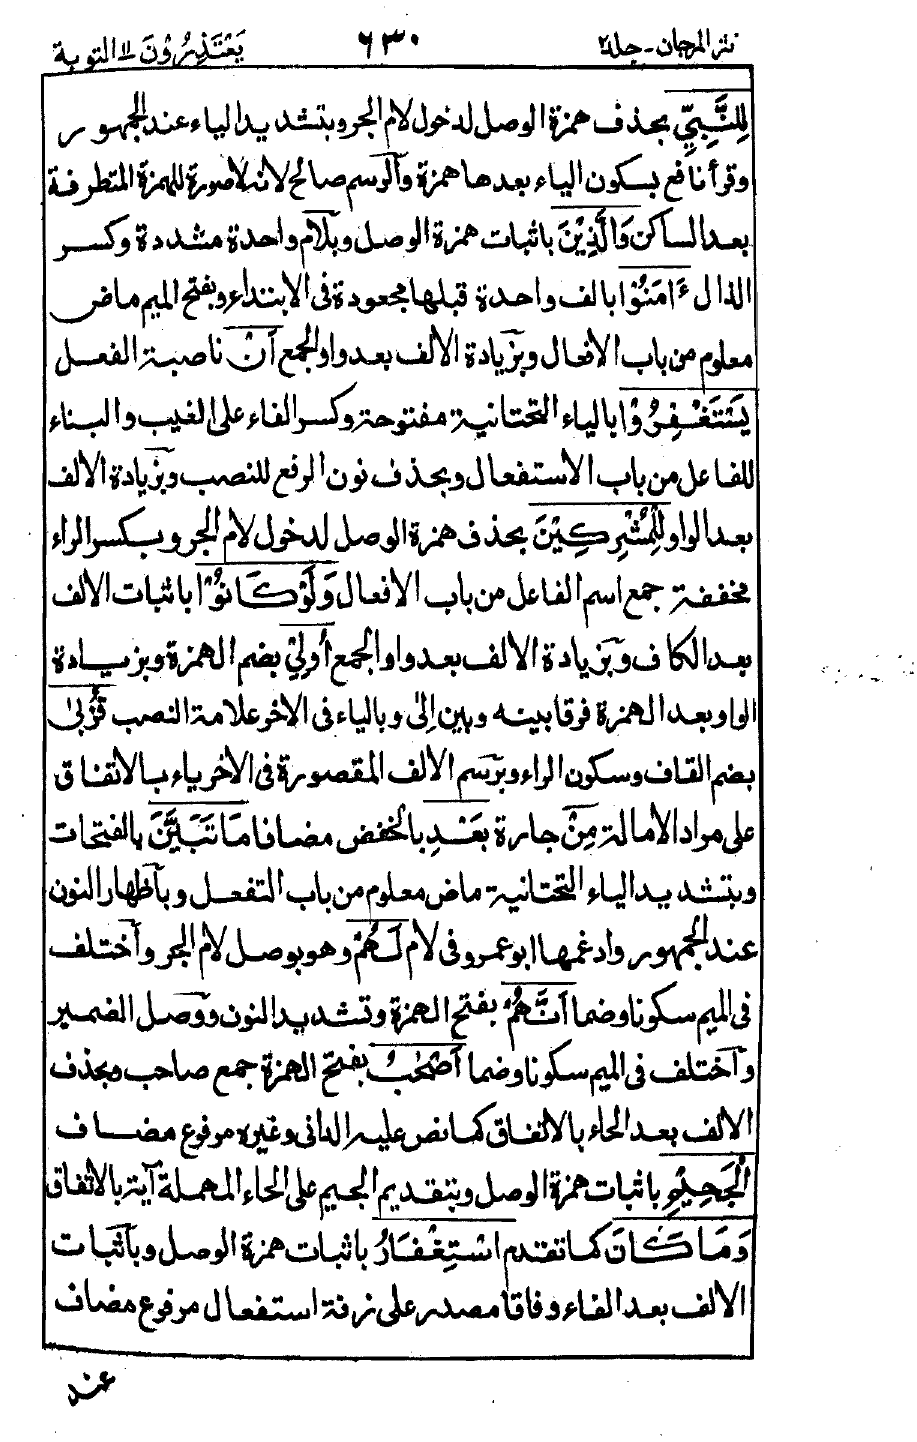 نثر المرجان - جلد٢ ٦٣٠ يَعْتَذِرُوْنَ ١١ التوبة
لِلنَّبِيِّ بحذف همزة الوصل لدخول لام الجر وبتشديد الياء عند الجمهور
وقرأ نافع بسكون الياء بعدها همزة والرسم صالح لانه لاصورة للهمزة المتطرفة
بعد الساكن وَالَّذِيْنَ باثبات همزة الوصل وبلام واحدة مشددة وكسر
الذال ءَامَنُوْا بالف واحدة قبلها مجعودة فى الابتداء وبفتح الميم ماض
معلوم من باب الافعال وبزيادة الالف بعد واو الجمع اَنْ ناصبة الفعل
يَسْتَغْفِرُوْا بالياء التحتانية مفتوحة وكسر الفاء على الغيب والبناء
للفاعل من باب الاستفعال وبحذف نون الرفع للنصب وبزيادة الالف
بعد الواو لِلْمُشْرِكِيْنَ بحذف همزة الوصل لدخول لام الجر وبكسر الراء
مخففة جمع اسم الفاعل من باب الافعال وَلَوْ كَانُوْا باثبات الالف
بعد الكاف وبزيادة الالف بعد واو الجمع اُولِيْ بضم الهمزة وبزيادة
الواو بعد الهمزة فرقا بينه وبين اِلىٰ وبالياء فى الاخر علامة النصب قُرْبىٰ
بضم القاف وسكون الراء وبرسم الالف المقصورة فى الاخر ياء بالاتفاق
على مراد الامالة مِنْ جارة بَعْدِ بالخفض مضافا مَا تَبَيَّنَ بالفتحات
وبتشديد الياء التحتانية ماض معلوم من باب التفعل وباظهار النون
عند الجمهور وادغمها ابو عمرو فى لام لَهُمْ وهو بوصل لام الجر واختلف
فى الميم سكونا وضما اَنَّهُمْ بفتح الهمزة وتشديد النون ووصل الضمير
واختلف فى الميم سكونا وضما اَصْحٰبُ بفتح الهمزة جمع صاحب وبحذف
الالف بعد الحاء بالاتفاق كما نص عليه الدانى وغيره مرفوع مضاف
الْجَحِيْمِ باثبات همزة الوصل وبتقديم الجيم على الحاء المهملة آية بالاتفاق
وَمَا كَانَ كما تقدم اسْتِغْفَارُ باثبات همزة الوصل وباثبات
الالف بعد الفاء وفاقا مصدر على زنة استفعال مرفوع مضاف
عند